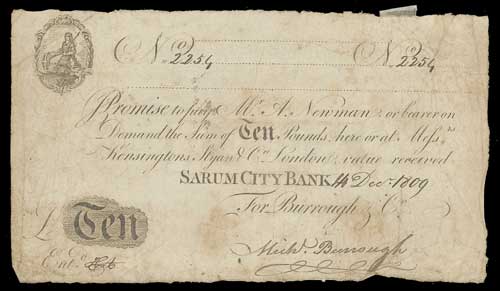 No. 2254 No. 2254
I Promise to pay Mr. A. Newman, or bearer on
Demand the Sum of Ten Pounds, here or at Mess.rs
Kensingtons Styan & Co. London; value received
SARUM CITY BANK 14 Dec.r 1809
For Burrough & Co.
£ Ten
Mich.l Burrough
Ent.d